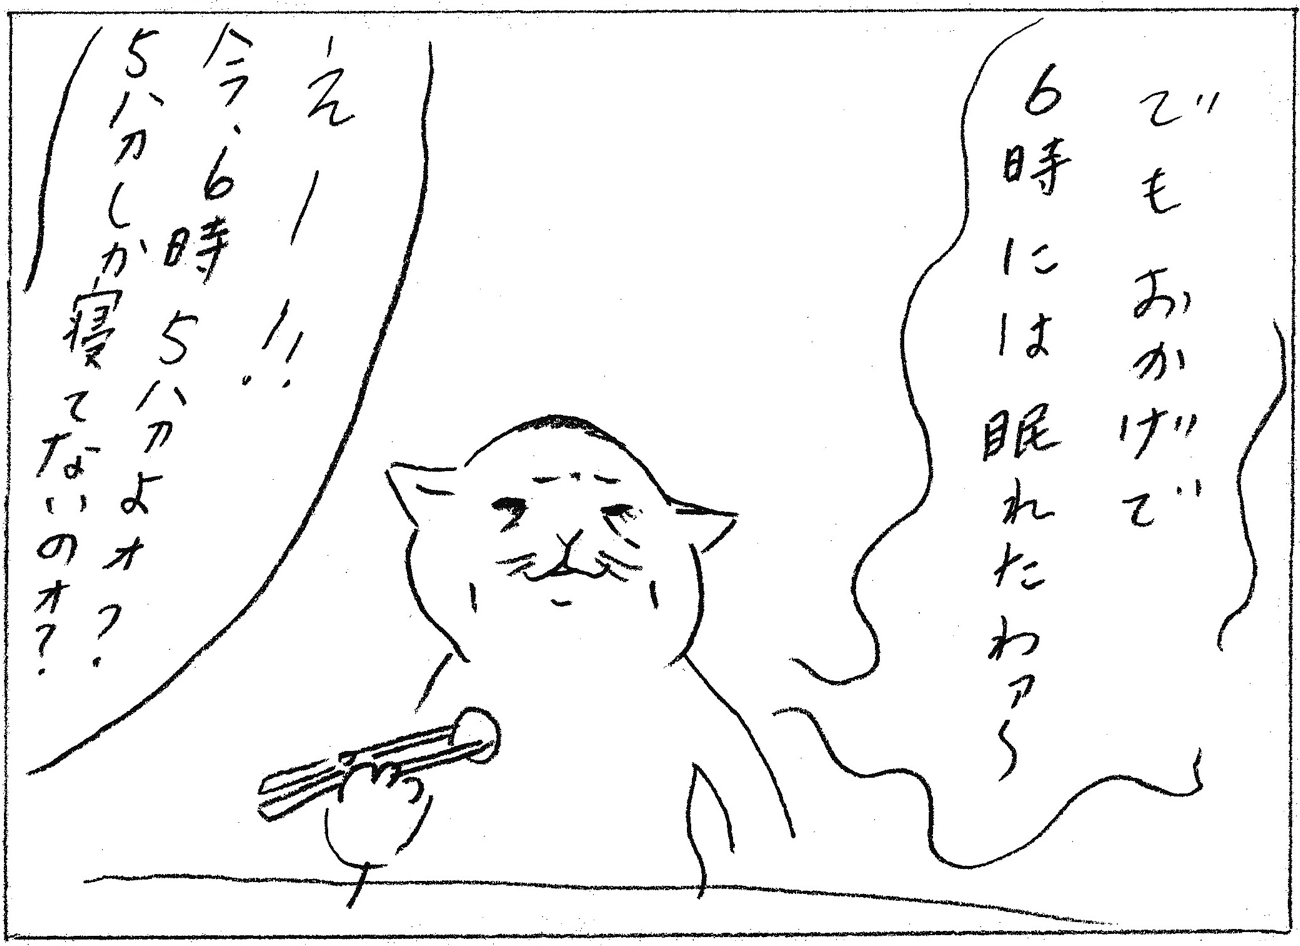 でもおかげで
6時には眠れたわァ〜
えー!!
今、6時5分よォ?
5分しか寝てないのォ?